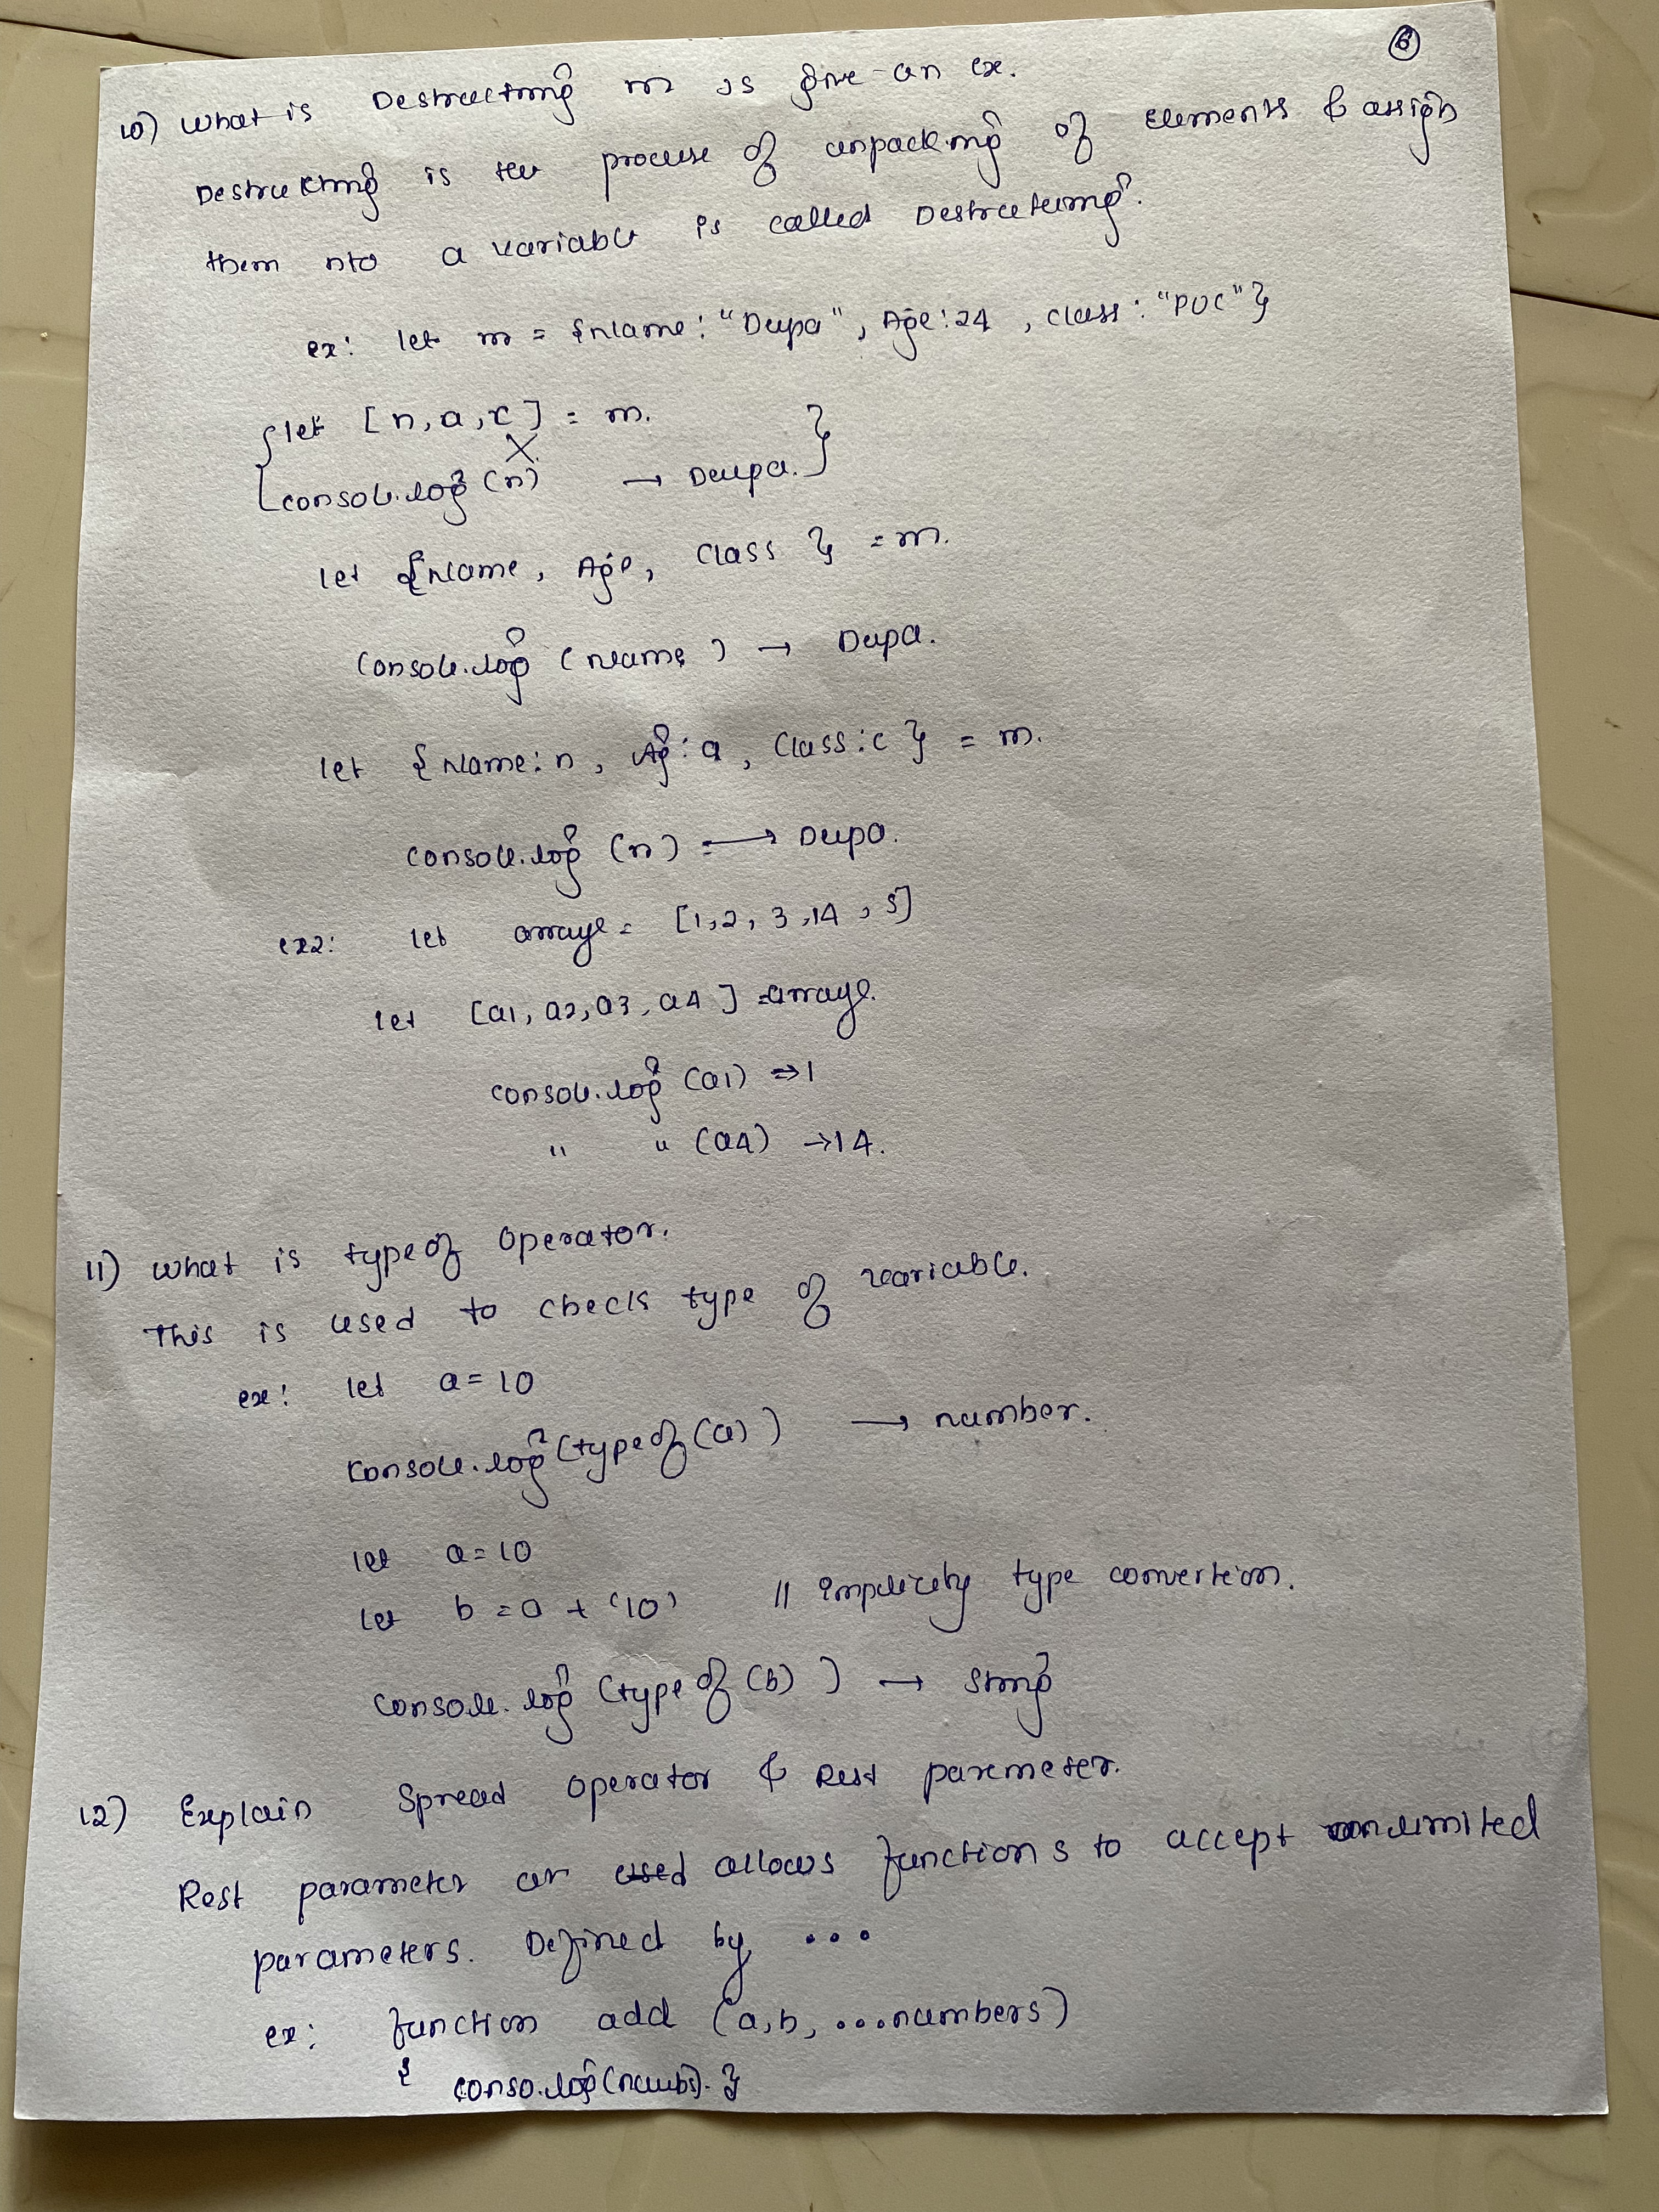 6
10) What is Destructing in JS give an ex.
Destructing is the process of unpacking of elements & assign
them nto a variable is called Destructuring.
ex: let m = {Name: "Deepa", Age: 24, class: "PUC"}
let [n, a, c] = m.
X
console.log(n) → Deepa.
let {Name, Age, Class } = m.
Console.log (Name) → Deepa.
let { Name: n, Ag: a, Class: c } = m.
console.log (n) → Deepa.
ex2: let arraye = [1, 2, 3, 14, 5]
let [a1, a2, a3, a4 ] = arraye.
console.log (a1) ⇒ 1
" " (a4) → 14.
11) What is typeof operator.
This is used to check type of variable.
ex: let a = 10
console.log (typeof (a) ) → number.
let a = 10
let b = a + '10' // Implicitly type convertion.
console.log (typeof (b) ) → String
12) Explain Spread operator & Rest paremeter.
Rest parameter are used allows functions to accept unlimited
parameters. Defined by ...
ex: function add (a, b, ...numbers)
{ conso.log(numbs). }